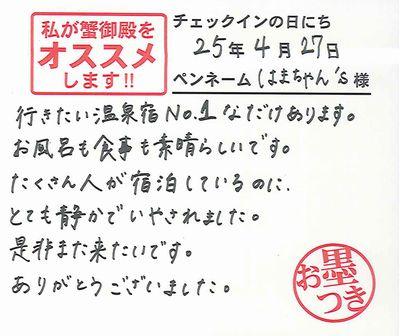 私が蟹御殿を
オススメ
します!!
チェックインの日にち
25年4月27日
ペンネーム はまちゃん's 様
行きたい温泉宿No.1なだけあります。
お風呂も食事も素晴らしいです。
たくさん人が宿泊しているのに、
とても静かでいやされました。
是非また来たいです。
ありがとうございました。
お墨つき